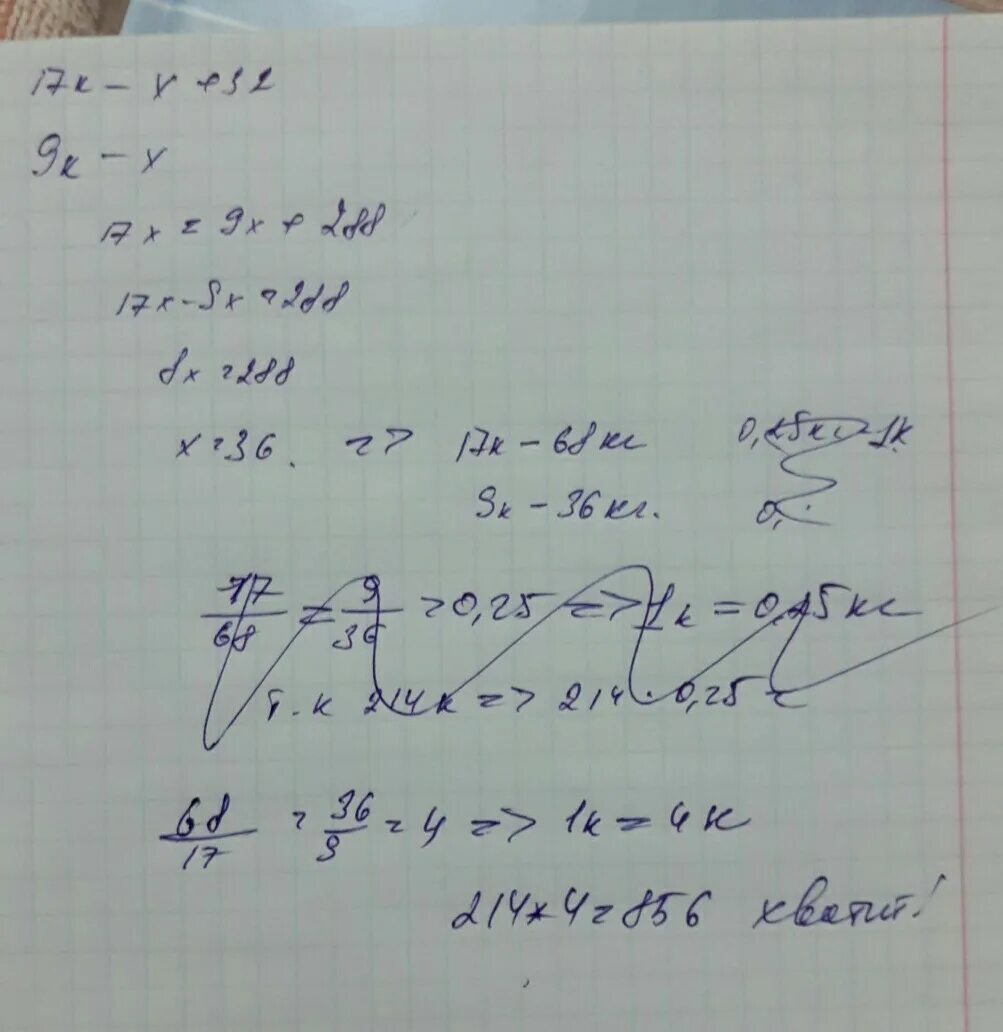 17к – х + 32
9к – х
17х = 9х + 288
17х – 9х = 288
8х = 288
х = 36. => 17к – 68кг
9к – 36кг.
17/68 = 9/36 = 0,25 => 1к = 0,25кг
т.к 214к => 214 · 0,25 =
68/17 = 36/9 = 4 => 1к = 4к
214 * 4 = 856 хватит!